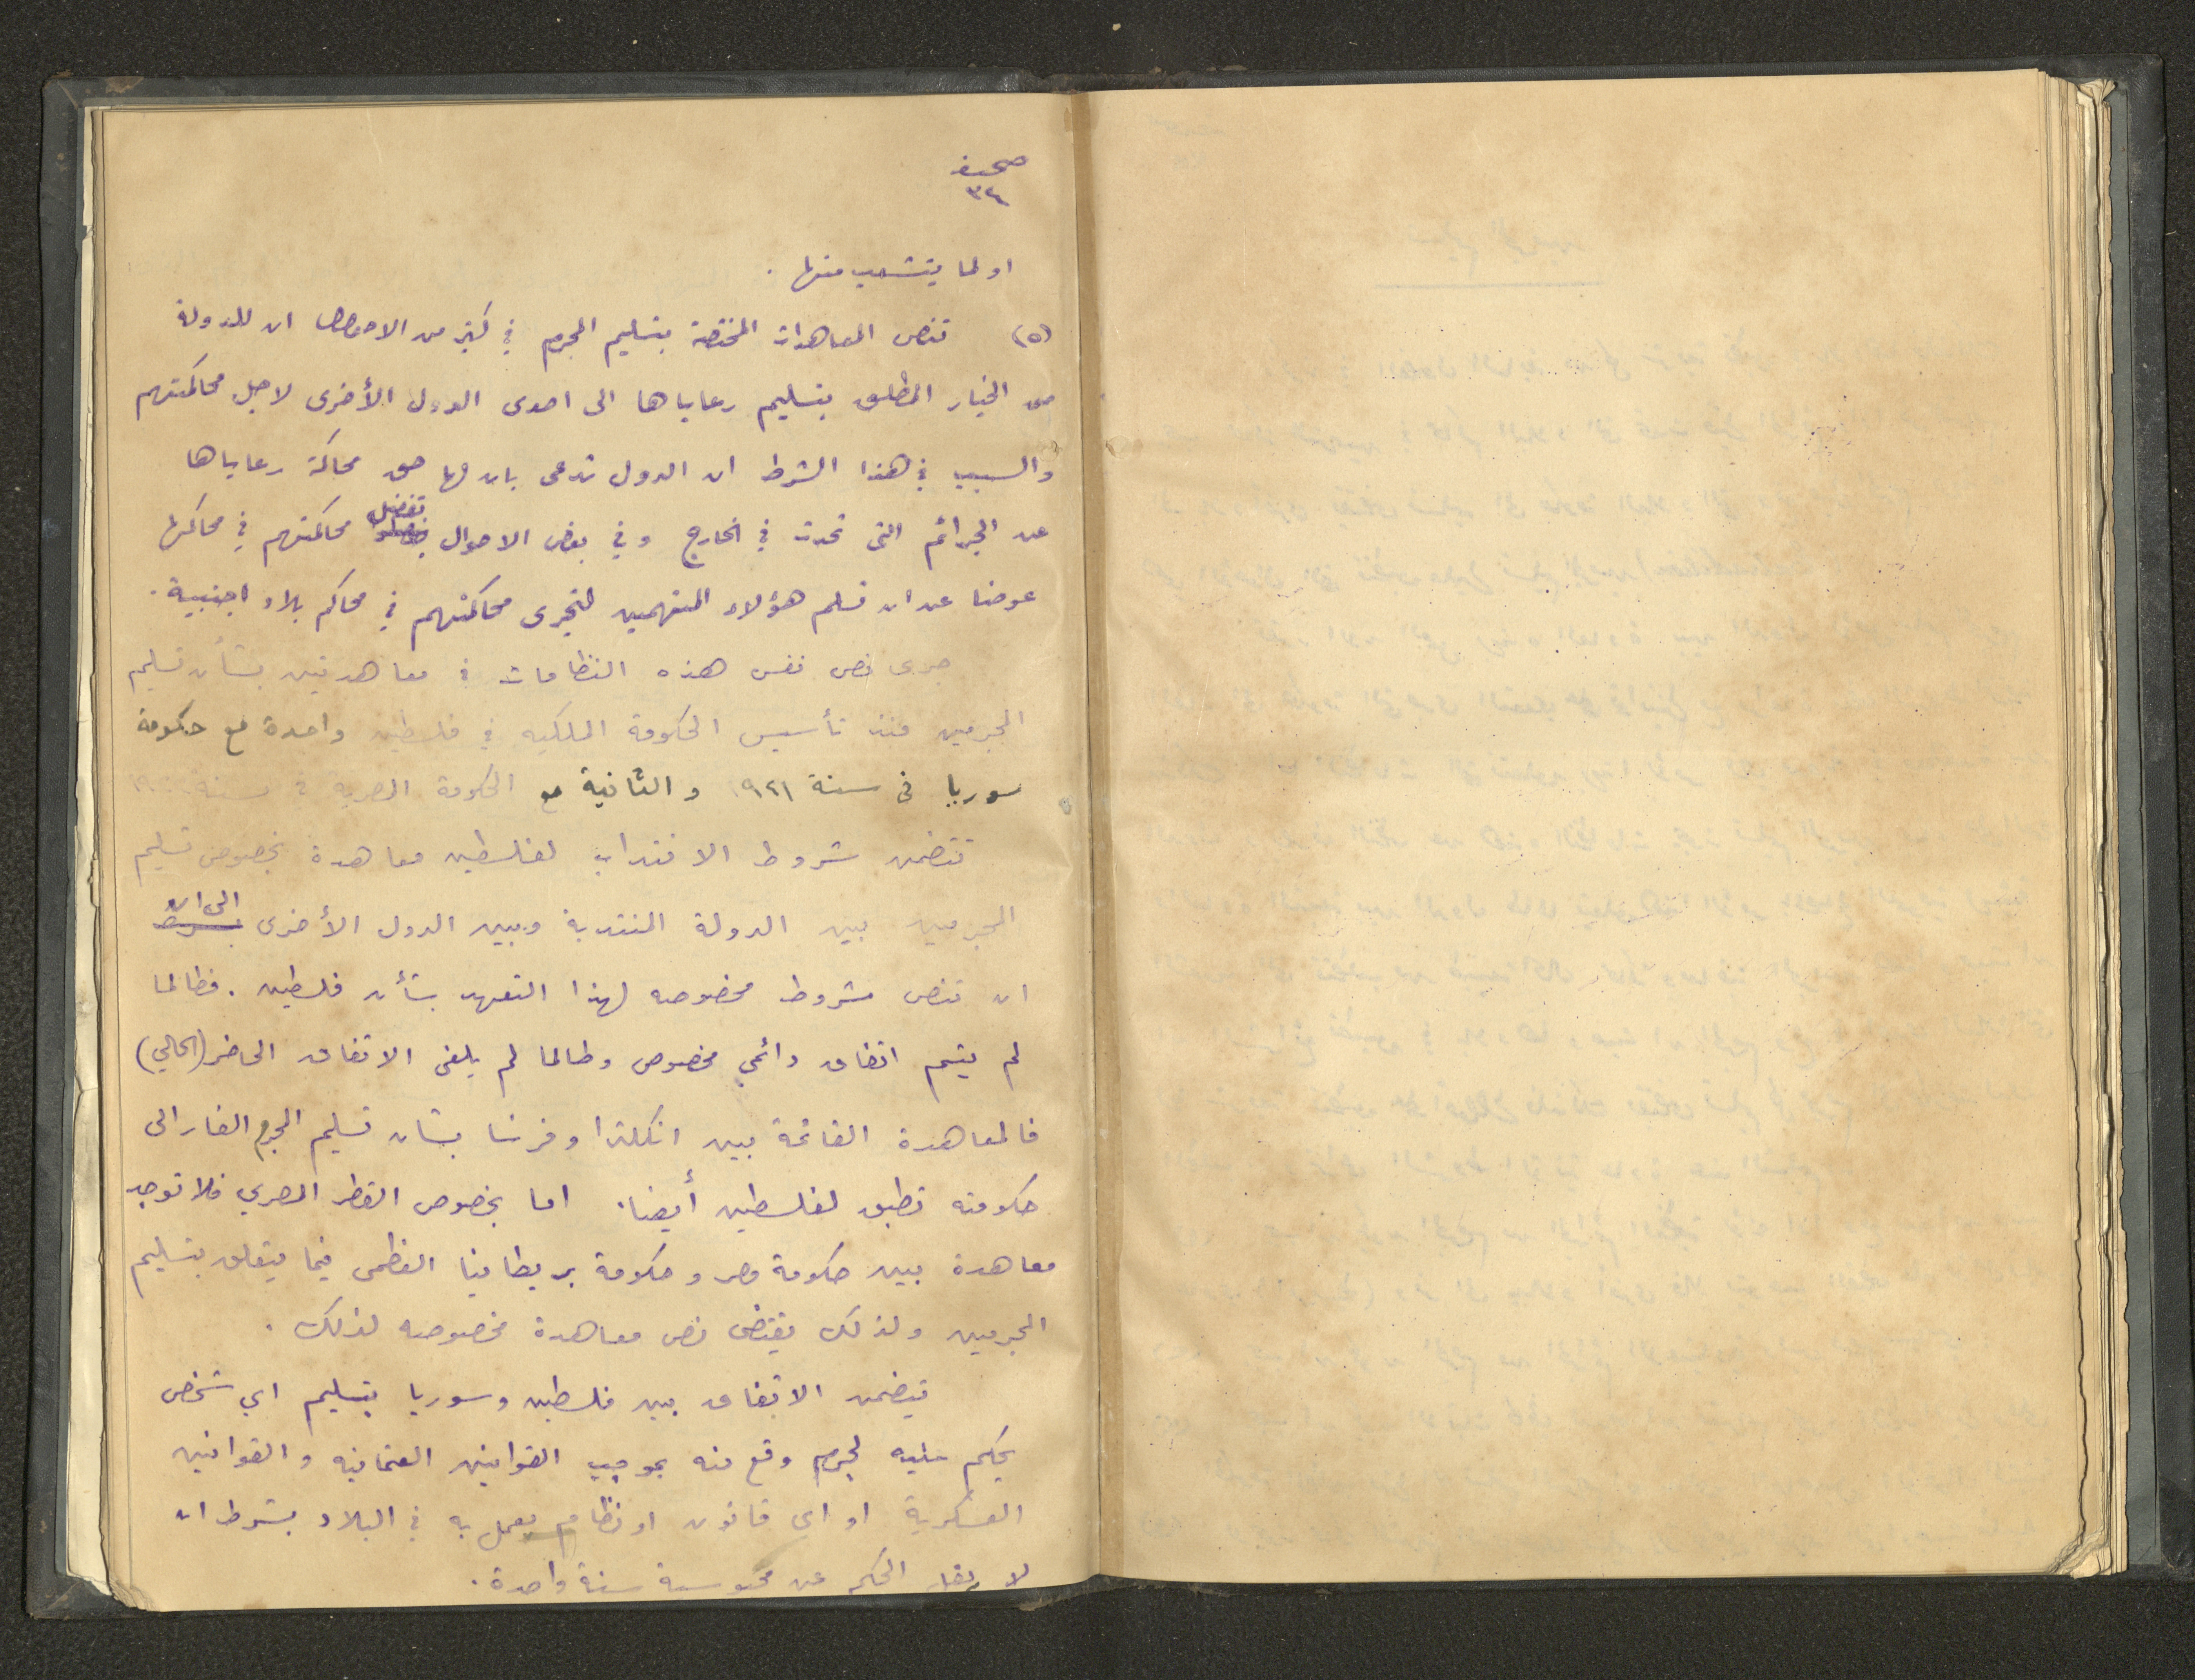 صحيفة
٣٤
او لما يتشعب منها .
(٥) تنص المعاهدات المختصة بتسليم المجرم في كثير من الاحوال ان للدولة
الخيار المطلق بتسليم رعاياها الى احدى الدول الأخرى لاجل محاكمتهم
والسبب في هذا الشرط ان الدول تدعى بان لها حق محاكمة رعاياها
عن الجرائم التى تحدث في الخارج وفي بعض الاحوال تفضل محاكمتهم في محاكمها
عوضا عن ان تسلم هؤلاء المتهمين لتجرى محاكمتهم في محاكم بلاد اجنبية .
جرى نص نفس هذه النظامات في معاهدتين بشأن تسليم
المجرمين منذ تأسيس الحكومة الملكيه في فلسطين واحدة مع حكومة
سوريا فى سنة ١٩٢١ والثانية مع الحكومة المصرية في سنة
تتضمن شروط الانتداب لفلسطين معاهدة بخصوص تسليم
المجرمين بين الدولة المنتدبة وبين الدول الأخرى الى ان
ان تنص شروط مخصوصه لهذا التعهد بشأن فلسطين . فطالما
لم يتم اتفاق دائمي مخصوص وطالما لم يلغى الاتفاق الحاضر (الحالي)
فالمعاهدة القائمة بين انكلترا وفرنسا بشان تسليم المجرم الفار الى
حكومته تطبق لفلسطين أيضا . اما بخصوص القطر المصري فلا توجد
معاهدة بين حكومة مصر وحكومة بريطانيا العظمى فيما يتعلق بتسليم
المجرمين ولذلك يقتضى نص معاهدة مخصوصه لذلك .
يتضمن الاتفاق بين فلسطين وسوريا بتسليم اي شخص
يحكم عليه لجرم وقع منه بموجب القوانين العثمانيه والقوانين
العسكرية او اي قانون او نظام يعمل به في البلاد بشرط ان
لا يقل الحكم عن محبوسية سنة واحدة .